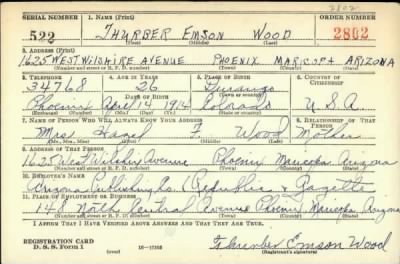 2802
SERIAL NUMBER 1. NAME (Print) ORDER NUMBER
522 THURBER EMSON WOOD 2802
(First) (Middle) (Last)
2. ADDRESS (Print)
1625 WEST WILSHIRE AVENUE PHOENIX MARICOPA ARIZONA
(Number and street or R. F. D. number) (Town) (County) (State)
3. TELEPHONE 4. AGE IN YEARS 5. PLACE OF BIRTH 6. COUNTRY OF CITIZENSHIP
34768 26 Durango
DATE OF BIRTH
Phoenix April 14 1914 Colorado U.S.A.
(Exchange) (Mo.) (Day) (Yr.) (State or country)
7. NAME OF PERSON WHO WILL ALWAYS KNOW YOUR ADDRESS 8. RELATIONSHIP OF THAT PERSON
Mrs. Hazel F. Wood Mother
(Mr., Mrs., Miss) (First) (Middle) (Last)
9. ADDRESS OF THAT PERSON
1625 West Wilshire Avenue Phoenix Maricopa Arizona
(Number and street or R. F. D. number) (Town) (County) (State)
10. EMPLOYER'S NAME
Arizona Publishing Co. (Republic & Gazette
11. PLACE OF EMPLOYMENT OR BUSINESS
148 North Central Avenue Phoenix Maricopa Arizona
(Number and street or R. F. D. number) (Town) (County) (State)
I AFFIRM THAT I HAVE VERIFIED ABOVE ANSWERS AND THAT THEY ARE TRUE.
REGISTRATION CARD
D. S. S. Form 1 (over) Thurber Emson Wood
(Registrant's signature)